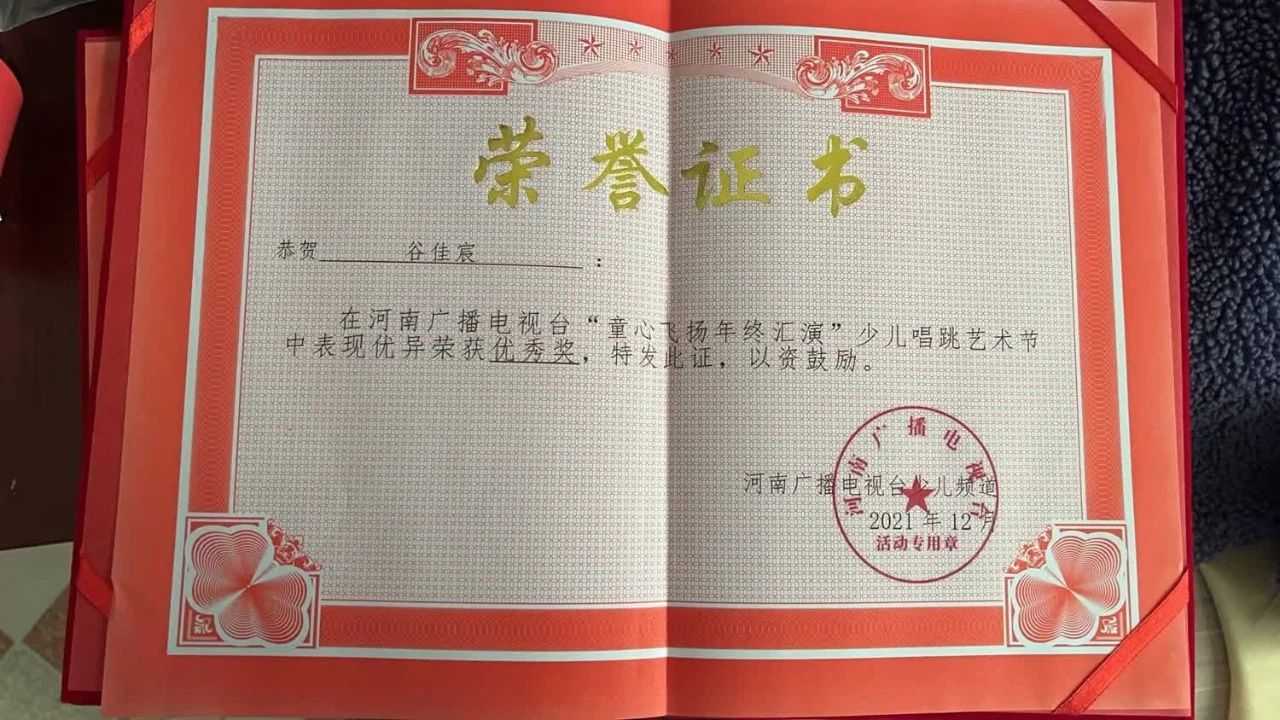 荣誉证书
恭贺 谷佳宸 ：
在河南广播电视台“童心飞扬年终汇演”少儿唱跳艺术节
中表现优异荣获优秀奖，特发此证，以资鼓励。
河南广播电视台
河南广播电视台少儿频道
2021 年 12 月
活动专用章